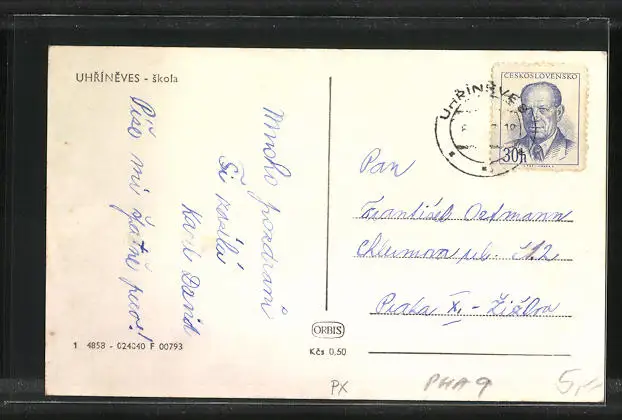 UHŘÍNĚVES - škola
Mnoho pozdravů
Ti posílá
Karel David
Piš mi
ČESKOSLOVENSKO
30h
UHŘÍNĚVES
Pan
František Ortmann
Chlumova ul. č12
Praha XI. - Žižkov
ORBIS
Kčs 0,50
1 4858 - 024040 F 00793
PX
PHA 9
5,-